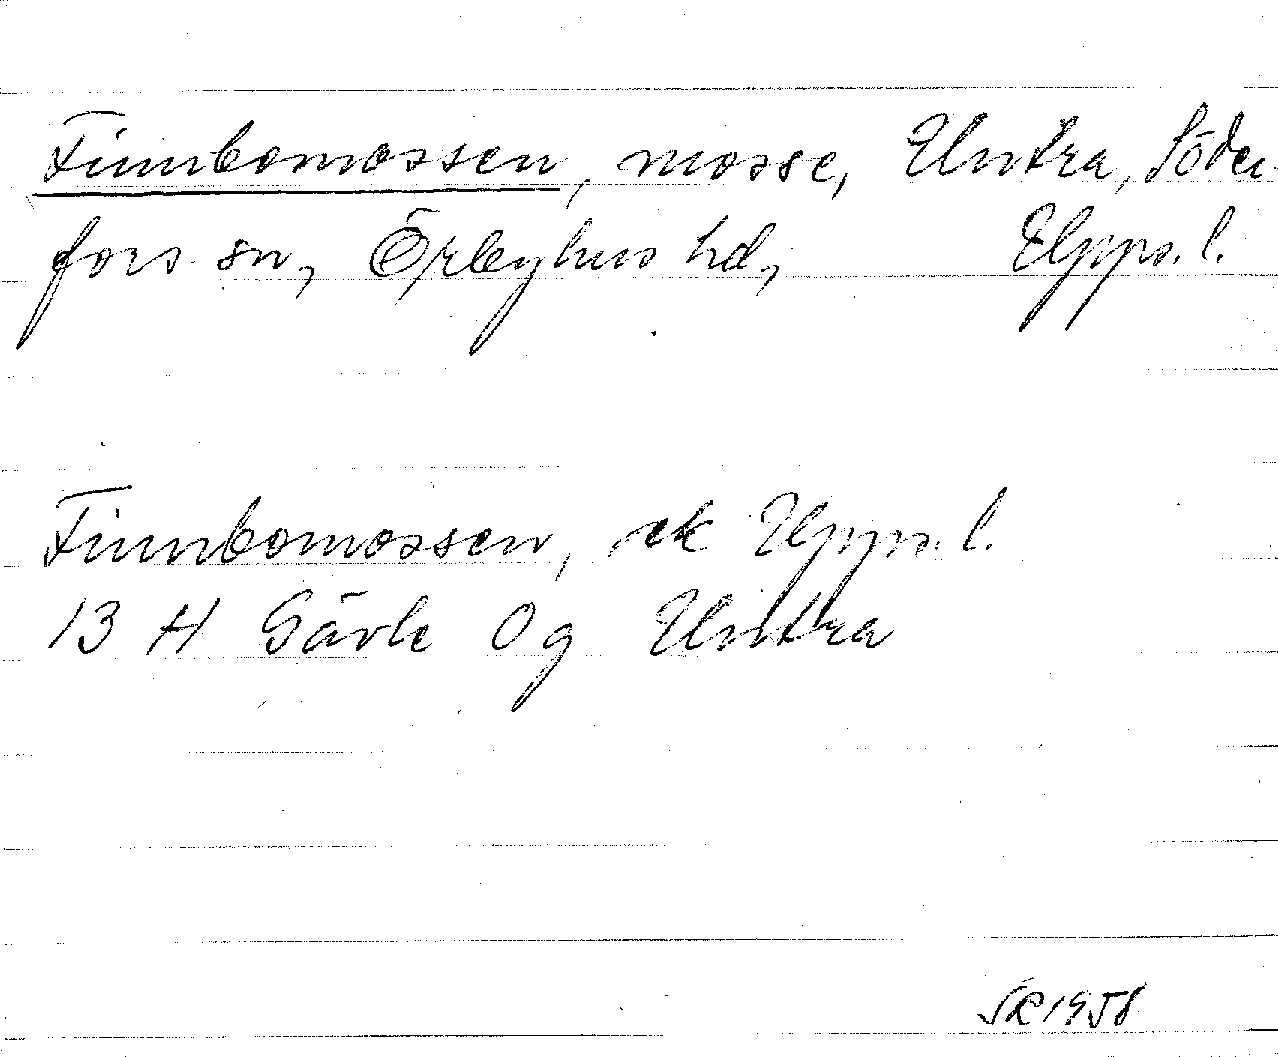 Finnbomossen, mosse, Untra, Söder-
fors sn, Örbyhus hd, Upps. l.
Finnbomossen, ek Upps. l.
13 H Gävle 0g Untra
SR 1958